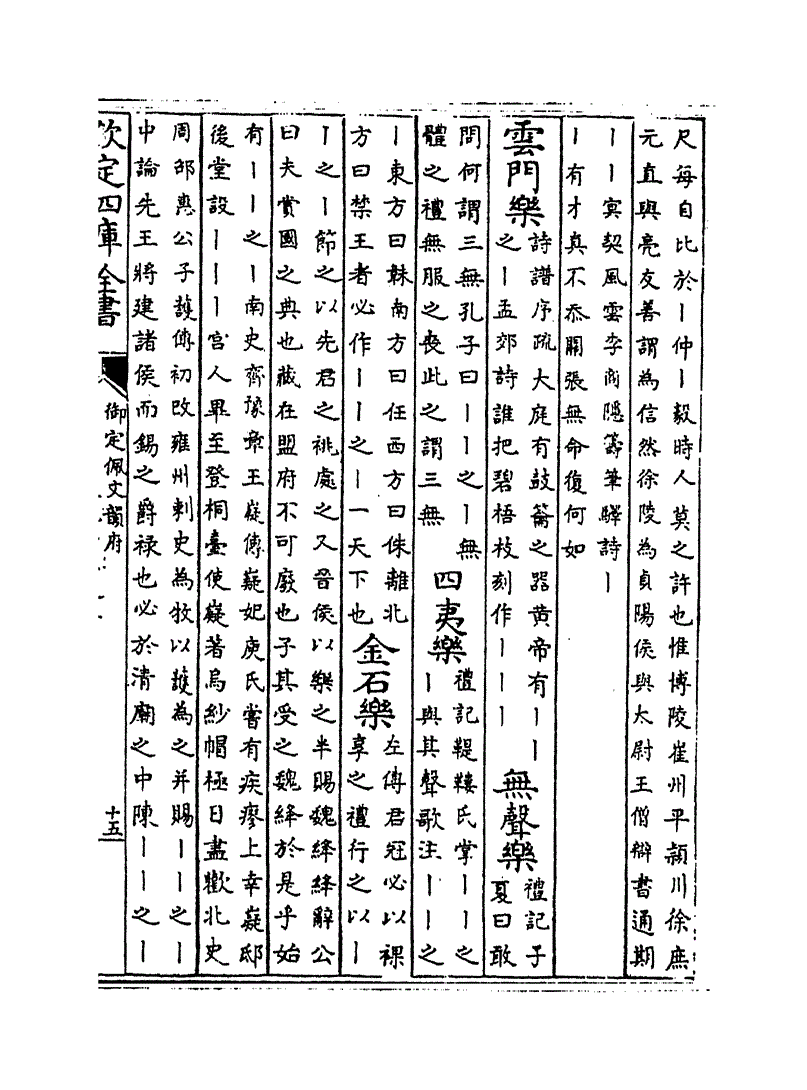 尺每自比於丨仲丨毅時人莫之許也惟博陵崔州平潁川徐庶
元直與亮友善謂為信然徐陵為貞陽侯與太尉王僧辯書通期
丨丨冥契風雲李商隱籌筆驛詩丨
丨有才真不忝關張無命復何如
雲門樂
詩譜序疏大庭有鼓籥之器黄帝有丨丨
之丨孟郊詩誰把碧梧枝刻作丨丨丨
無聲樂
禮記子
夏曰敢
問何謂三無孔子曰丨丨之丨無
體之禮無服之喪此之謂三無
四夷樂
禮記鞮鞻氏掌丨丨之
丨與其聲歌注丨丨之
丨東方曰韎南方曰任西方曰侏離北
方曰禁王者必作丨丨之丨一天下也
金石樂
左傳君冠必以祼
享之禮行之以丨
丨之丨節之以先君之祧處之又晉侯以樂之半賜魏絳絳辭公
曰夫賞國之典也藏在盟府不可廢也子其受之魏絳於是乎始
有丨丨之丨南史齊豫章王嶷傳嶷妃庾氏嘗有疾瘳上幸嶷邸
後堂設丨丨丨宫人畢至登桐臺使嶷著烏紗帽極日盡歡北史
周邵惠公子䕶傳初改雍州刺史為牧以䕶為之并賜丨丨之丨
中論先王將建諸侯而錫之爵禄也必於清廟之中陳丨丨之丨
欽定四庫全書
御定佩文韻府
十五